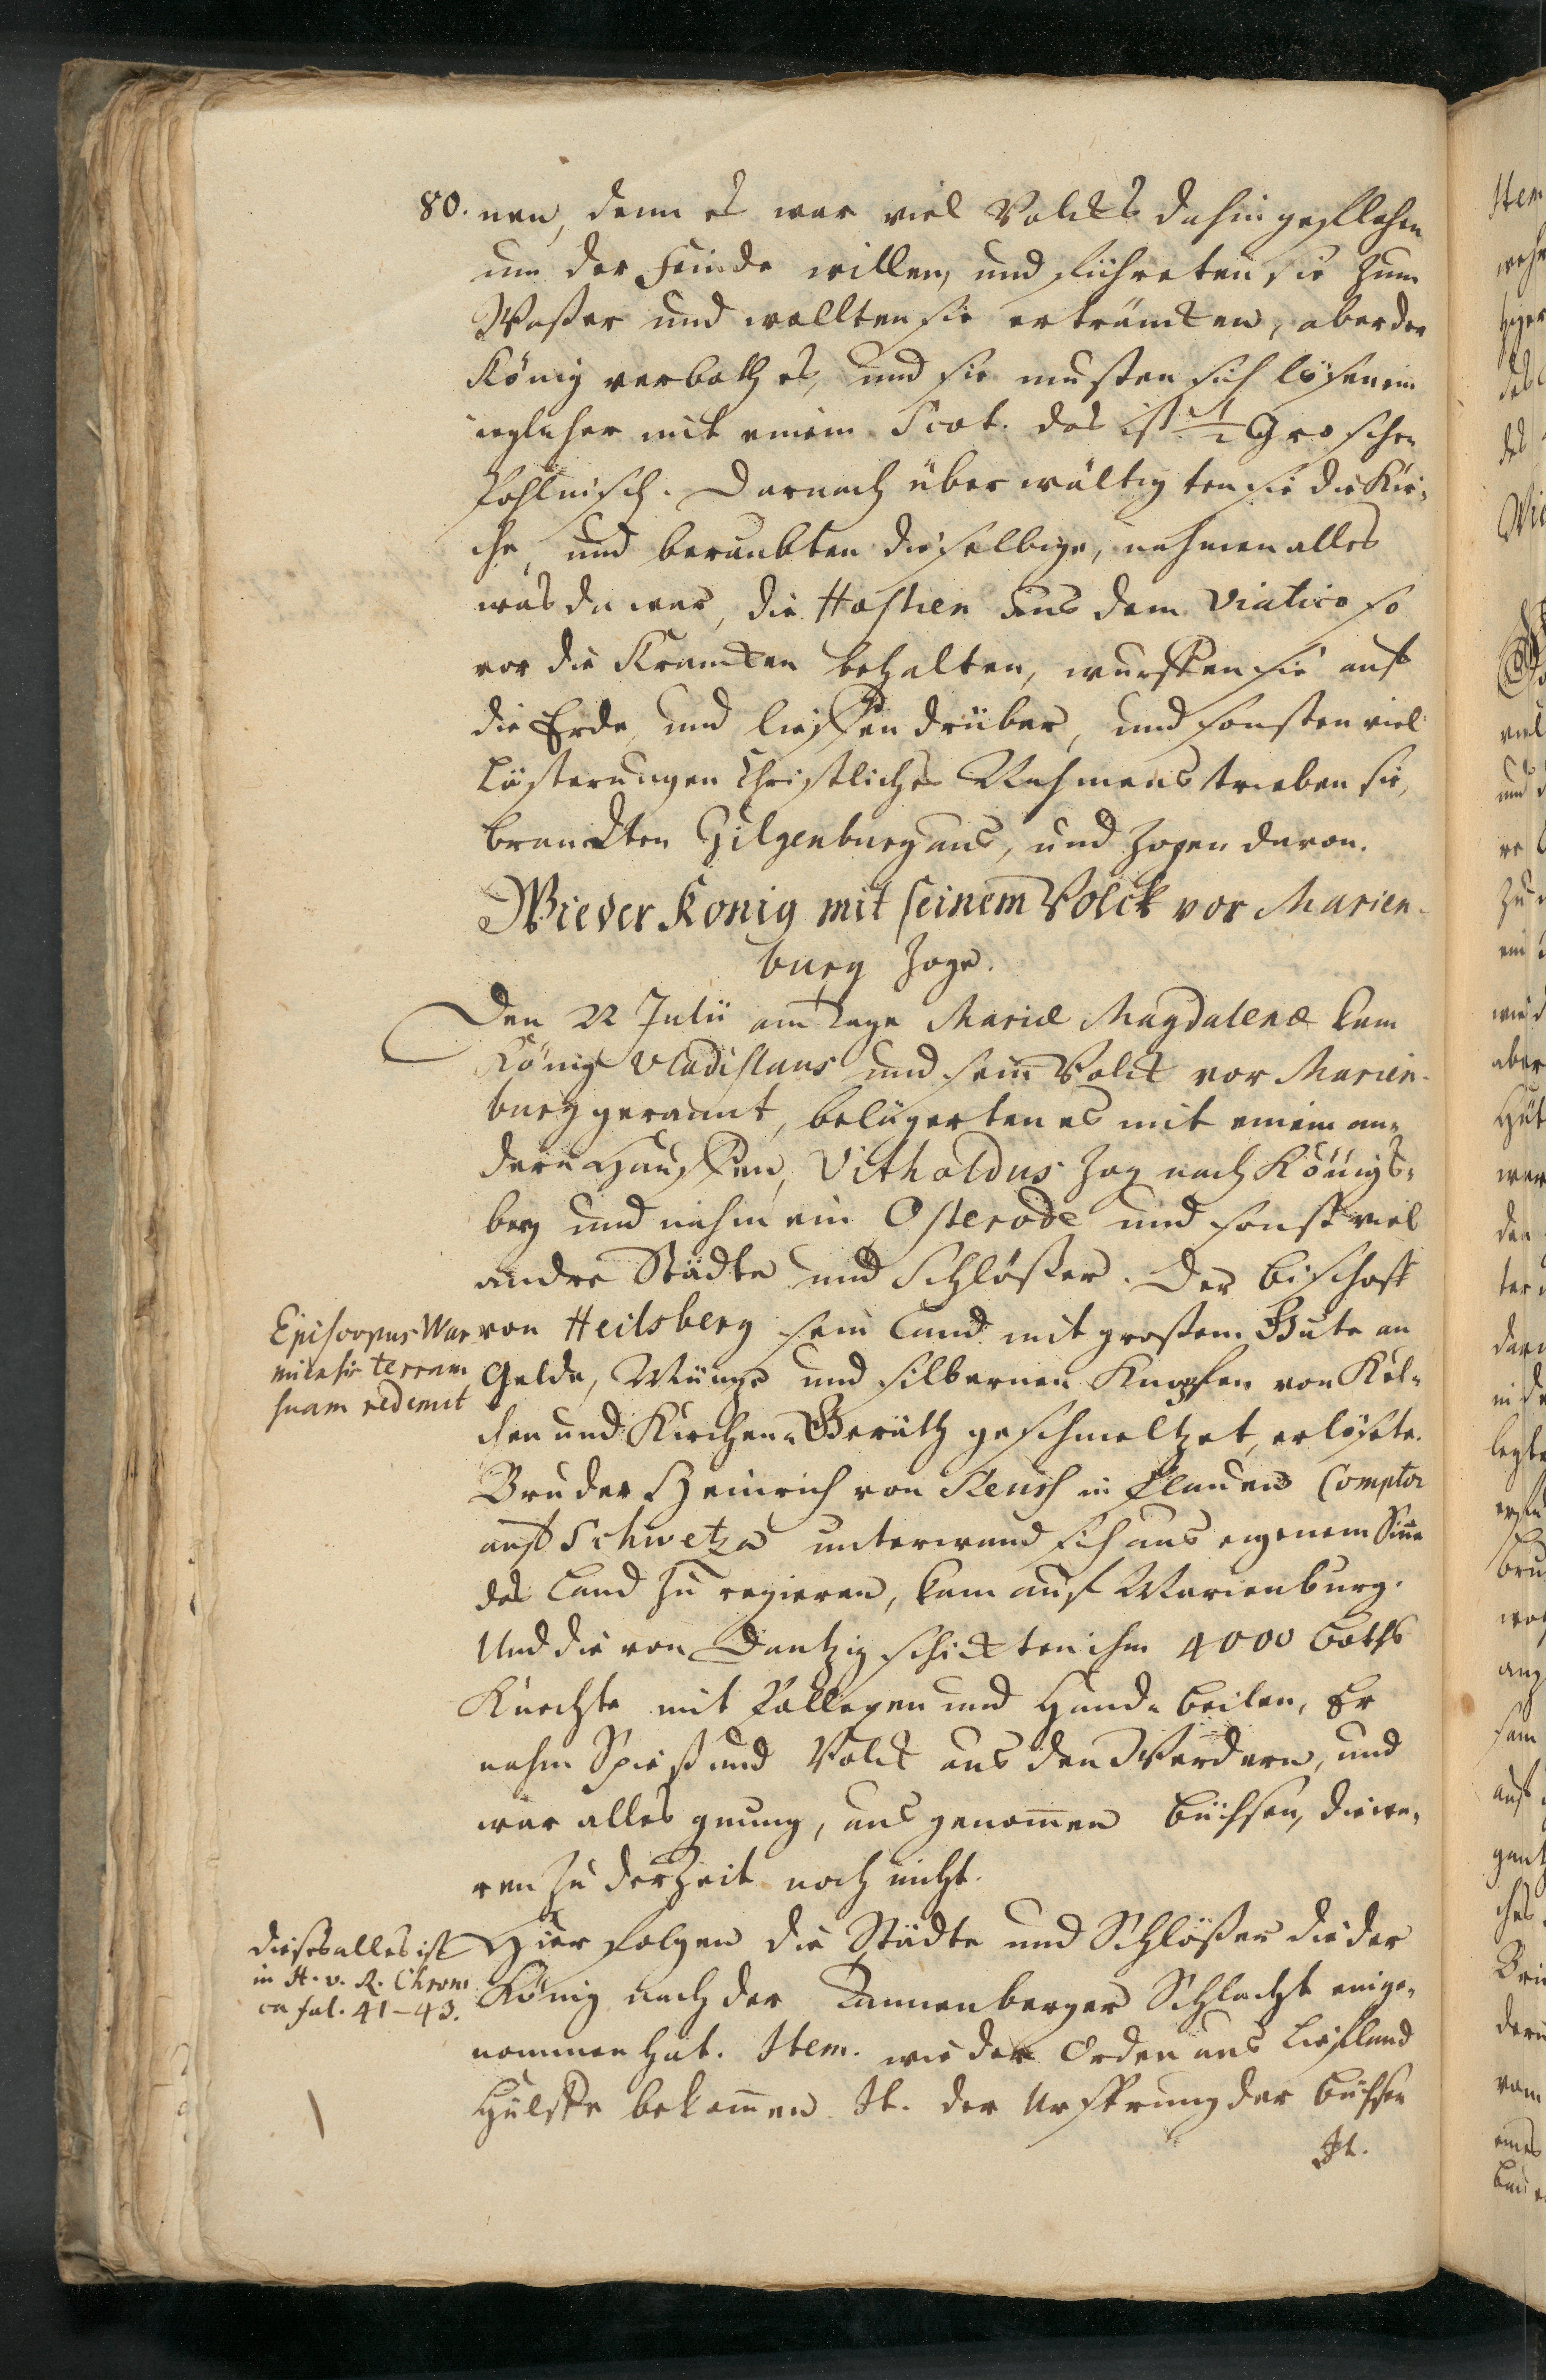 80. nen, denn es war viel Volcks dahin geflohen
um der Feinde willen, und führeten sie zum
Waßer und wollten sie erträncken, aber der
König verboth es, und sie musten sich lösen ein
ieglicher mit einem Scot. das ist ½ Groschen
Pohlnisch. Darnach überwältigten sie die Kir-
che, und beraubten dieselbige, nahmen alles
was da war, die Hostien aus dem Viatico so
vor die Krancken behalten, wurffen sie auf
die Erde, und lieffen drüber, und sonsten viel
Lästerungen Christliches Nahmens trieben sie,
brandten Gilgenburg aus, und zogen davon.
Wie der König mit seinem Volck vor Marien-
burg zoge.
Den 22 Julii am Tage Mariæ Magdalenæ kam
König Vladislaus und sein Volck vor Marien-
burg gerannt, belägerten es mit einem an-
dern Hauffen, Vitholdus zog nach Königs-
berg und nahm ein Osterode und sonst viel
andre Städte und Schlößer. Der Bischoff
von Heilsberg sein Land mit großem Gute an
Gelde, Müntze und silbernen Knopfen von Kel-
chen und Kirchen-Geräth geschmeltzet, erlösete.
Bruder Heinrich von Reuss in Plauen Comptor
auf Schwetza unterwand sich aus eigenem Sinn
das Land zu regieren, kam auf Marienburg.
Und die von Dantzig schickten ihm 4000 Boths
Knechte mit Pallegen und Hand-Beilen, Er
nahm Spieß und Volck aus den Werdern, und
war alles gnung, ausgenommen Büchsen, die wa-
ren zu der Zeit noch nicht.
Hier folgen die Städte und Schlößer die der
König nach der Tannenberger Schlacht einge-
nommen hat. Item. wie der Orden aus Liefland
Hülffe bekommen. It. der Ursprung der Büchsen
It.
Episcopus War
miensis terram
suam redemit
dieses alles ist
in H. v. R. Chron
ca fol. 41-43.